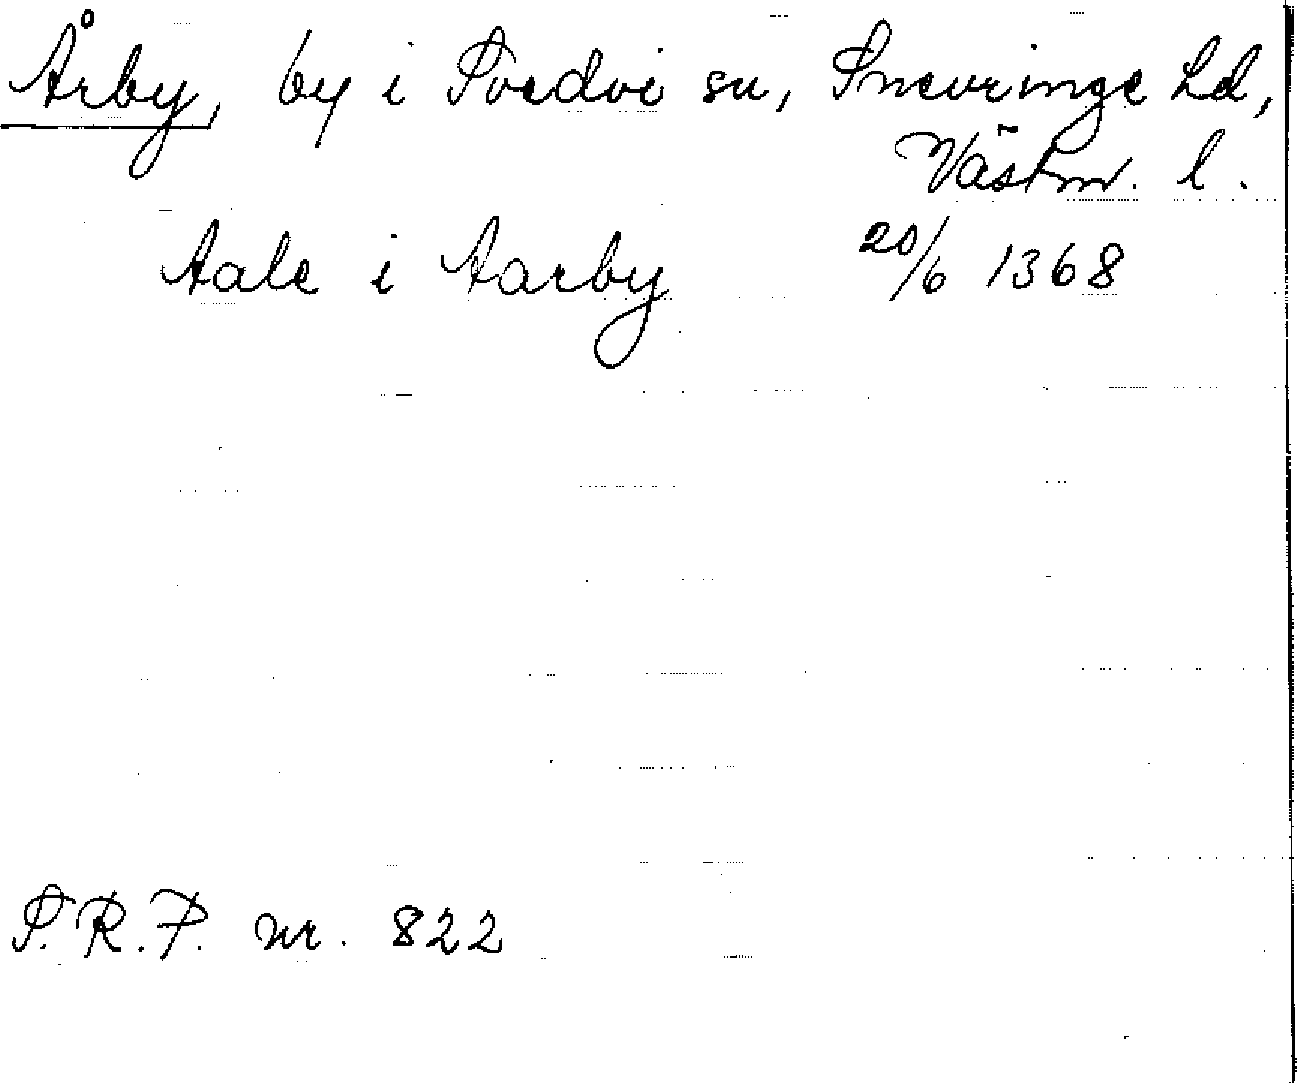 Årby, by i Svedvi sn, Snevringe hd,
Västm. l.
Aale i Aarby 20/6 1368
S.R.P. nr. 822